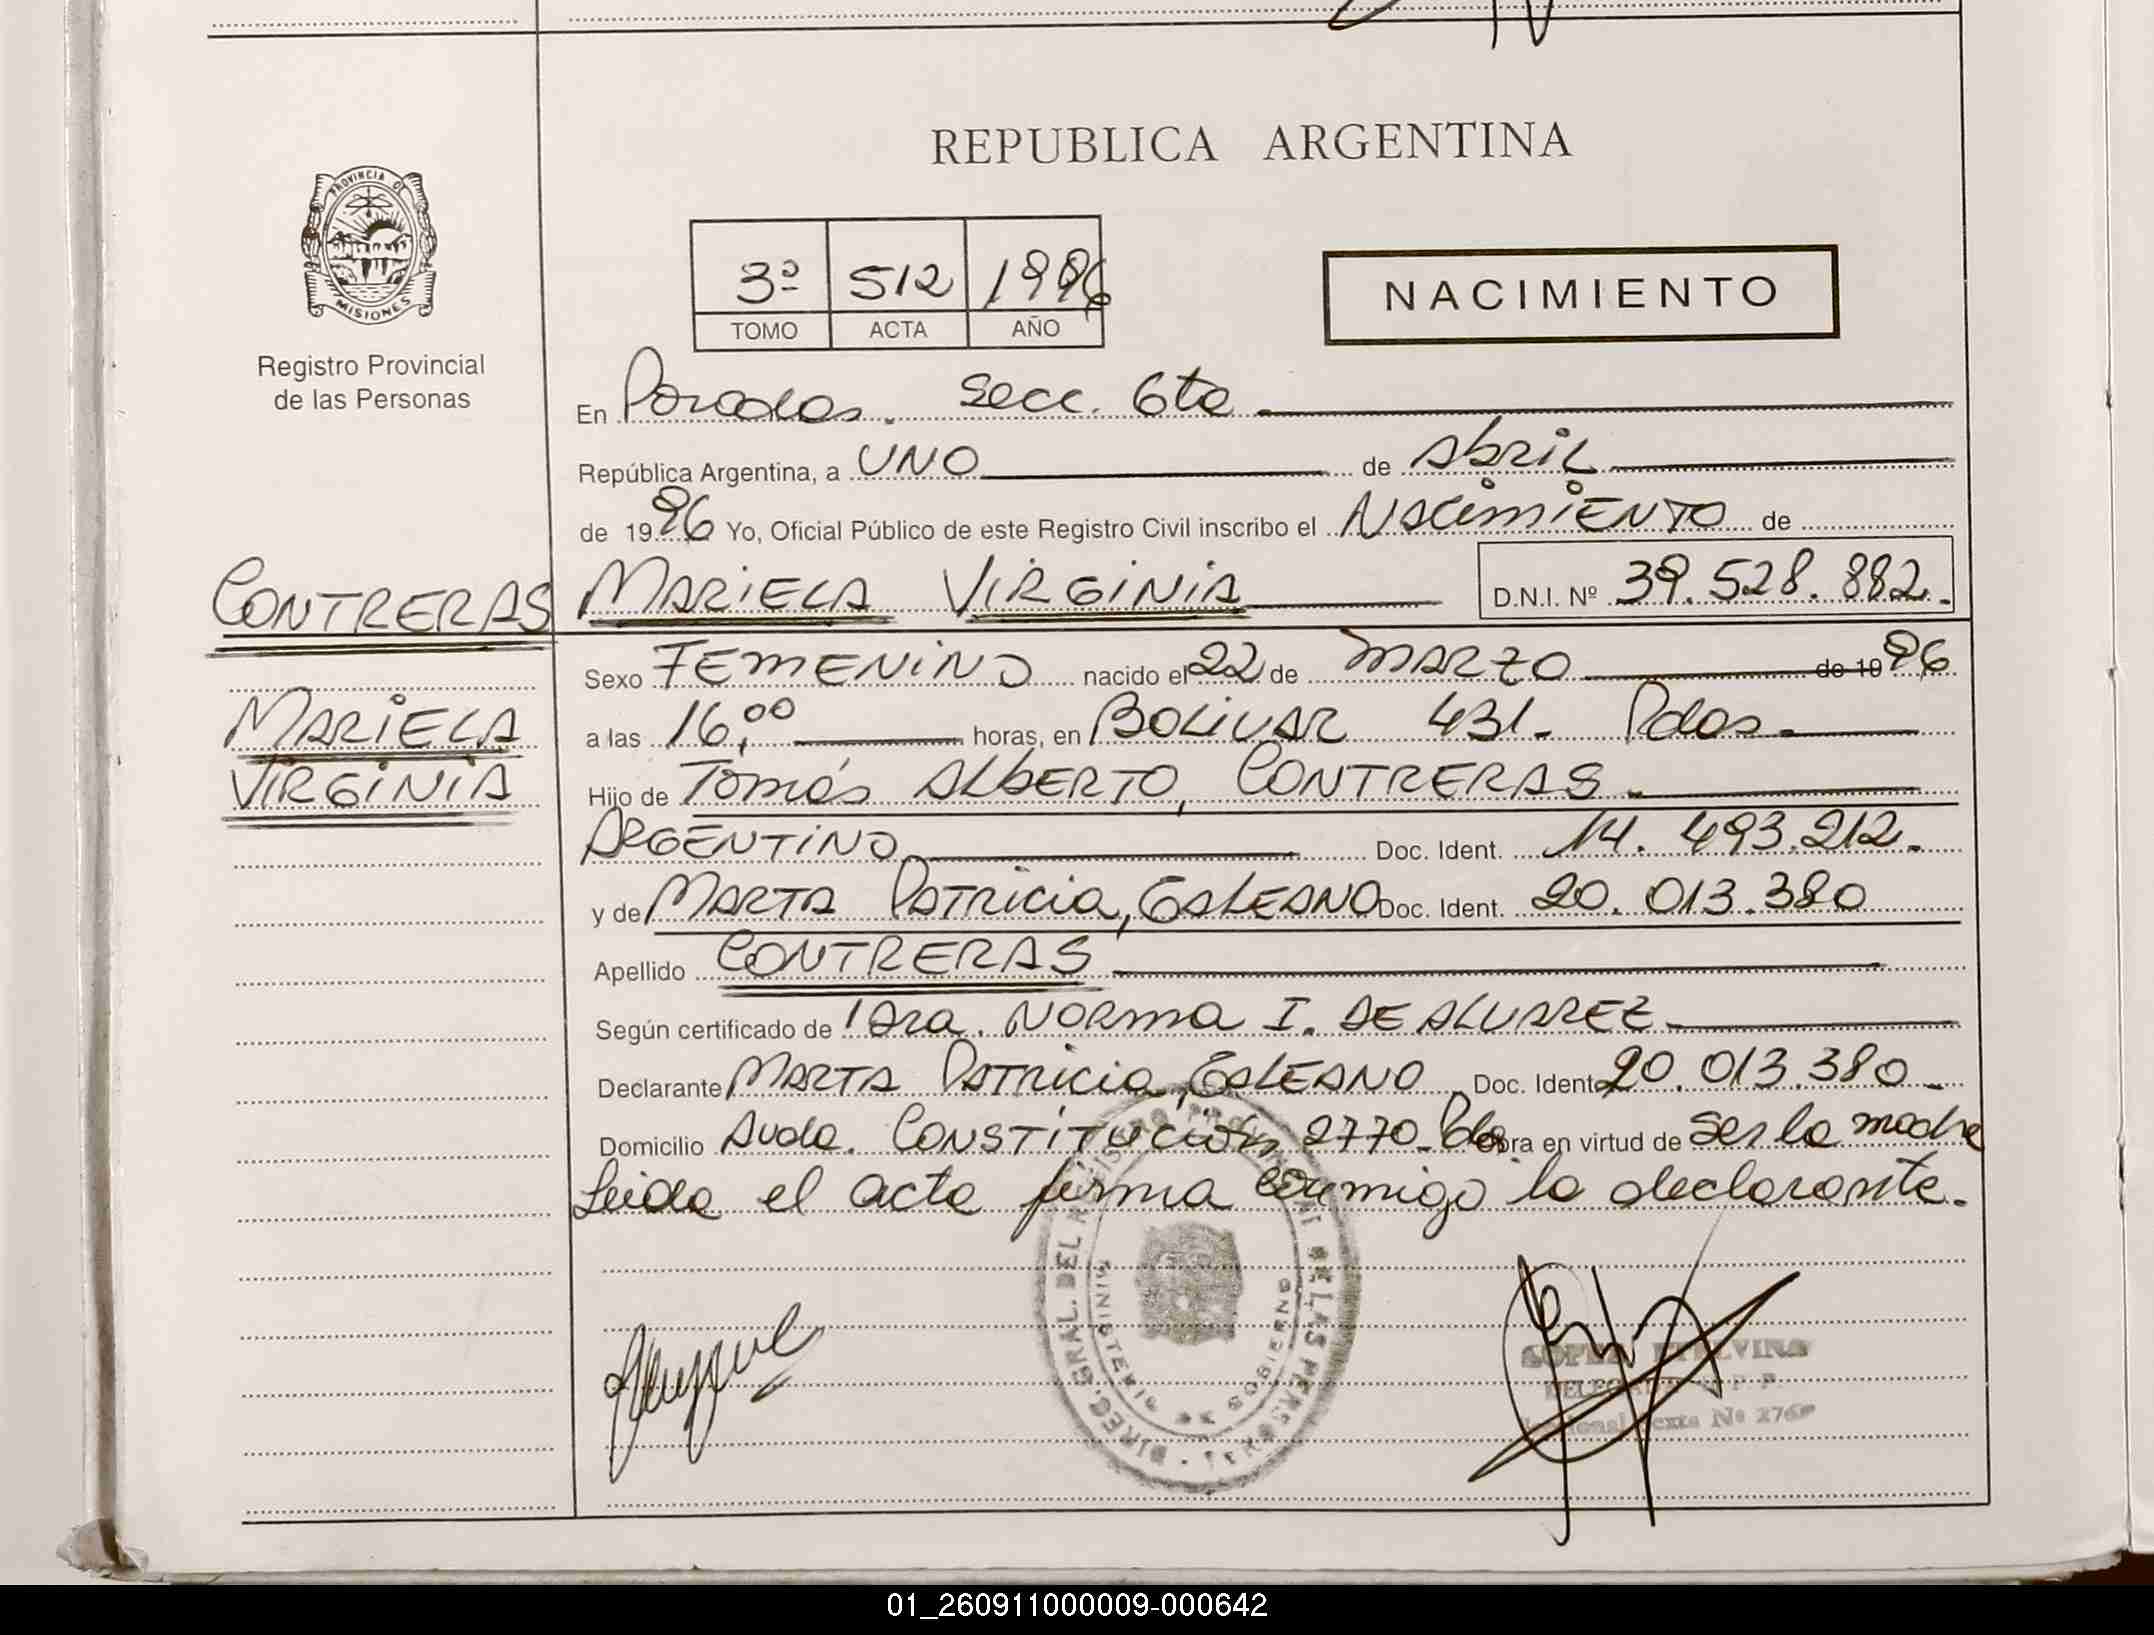 REPUBLICA ARGENTINA
PROVINCIA DE
MISIONES
Registro Provincial
de las Personas
3º 512 1996
TOMO ACTA AÑO
NACIMIENTO
En Posadas. Secc. 6ta
República Argentina, a UNO de Abril
de 1996 Yo, Oficial Público de este Registro Civil inscribo el NACIMIENTO de
CONTRERAS MARIELA VIRGINIA D.N.I. Nº 39.528.882.
Sexo FEMENINO nacido el 22 de MARZO de 1996
MARIELA
a las 16,00 horas, en BOLIVAR 431. Pdas.
VIRGINIA
Hijo de Tomás ALBERTO, CONTRERAS.
ARGENTINO Doc. Ident. 14.493.212.
y de MARTA PATRICIA, GALEANO Doc. Ident. 20.013.380
Apellido CONTRERAS
Según certificado de NORMA I. DE ALVAREZ
Declarante MARTA PATRICIA, GALEANO Doc. Ident. 20.013.380
Domicilio Avda. CONSTITUCIÓN 2770 Pdas obra en virtud de ser la madre
Leida el acta firma conmigo la declarante.
DIREC. GRAL. DEL REGISTRO PROVINCIAL DE LAS PERSONAS
MINISTERIO DE GOBIERNO
LOPEZ ETELVINA
Sexta Nº 276
01_260911000009-000642